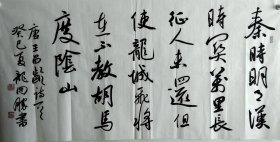 秦時明月漢
時関萬里長
征人未還但
使龍城飛將
在不教胡馬
度陰山
唐王昌齡詩一首
癸巳夏 書